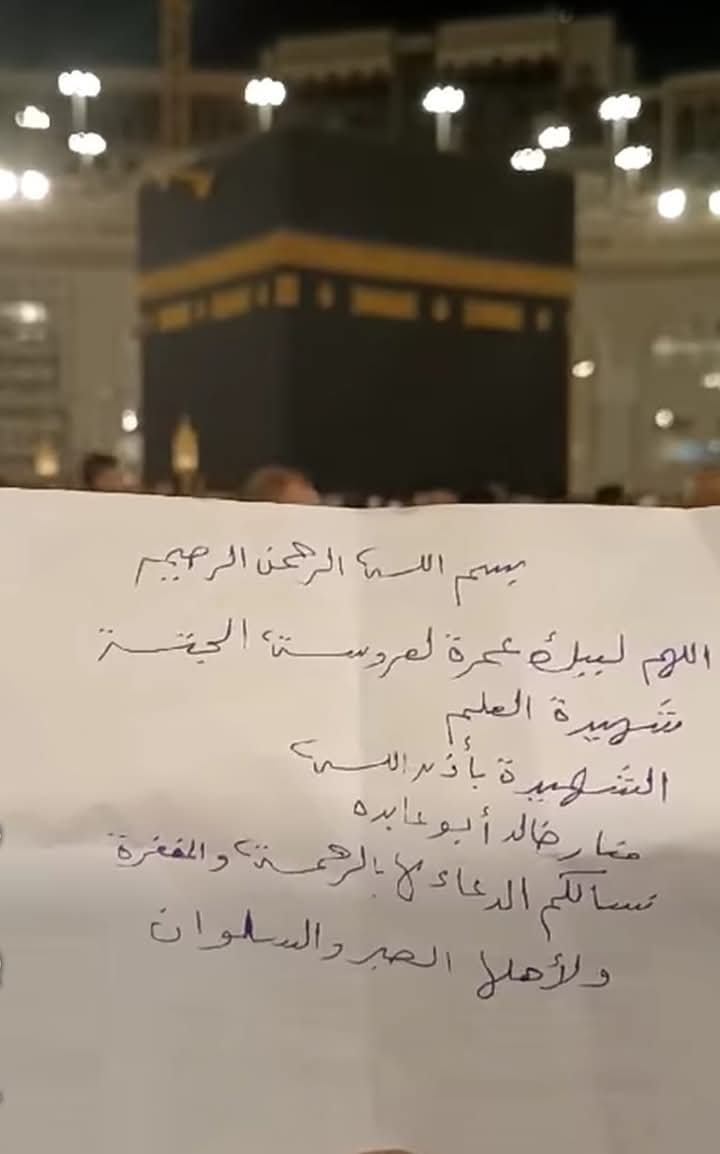 بسم الله الرحمن الرحيم
اللهم لبيك عمرة لعروسة الجنة
شهيدة العلم
الشهيدة بأذن الله
منار خالد أبو عابده
نسالكم الدعاء لها بالرحمة والمغفرة
ولأهلها الصبر والسلوان